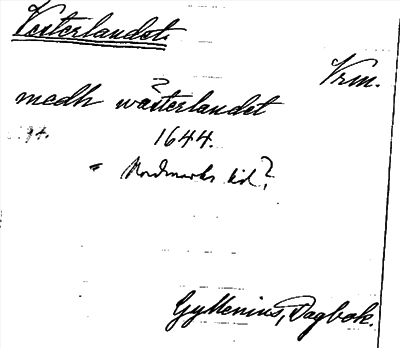 Vesterlandet.
Vrm.
?
medh wästerlandet
94.
1644.
= Nordmarks hd?
Gyllenius, Dagbok.